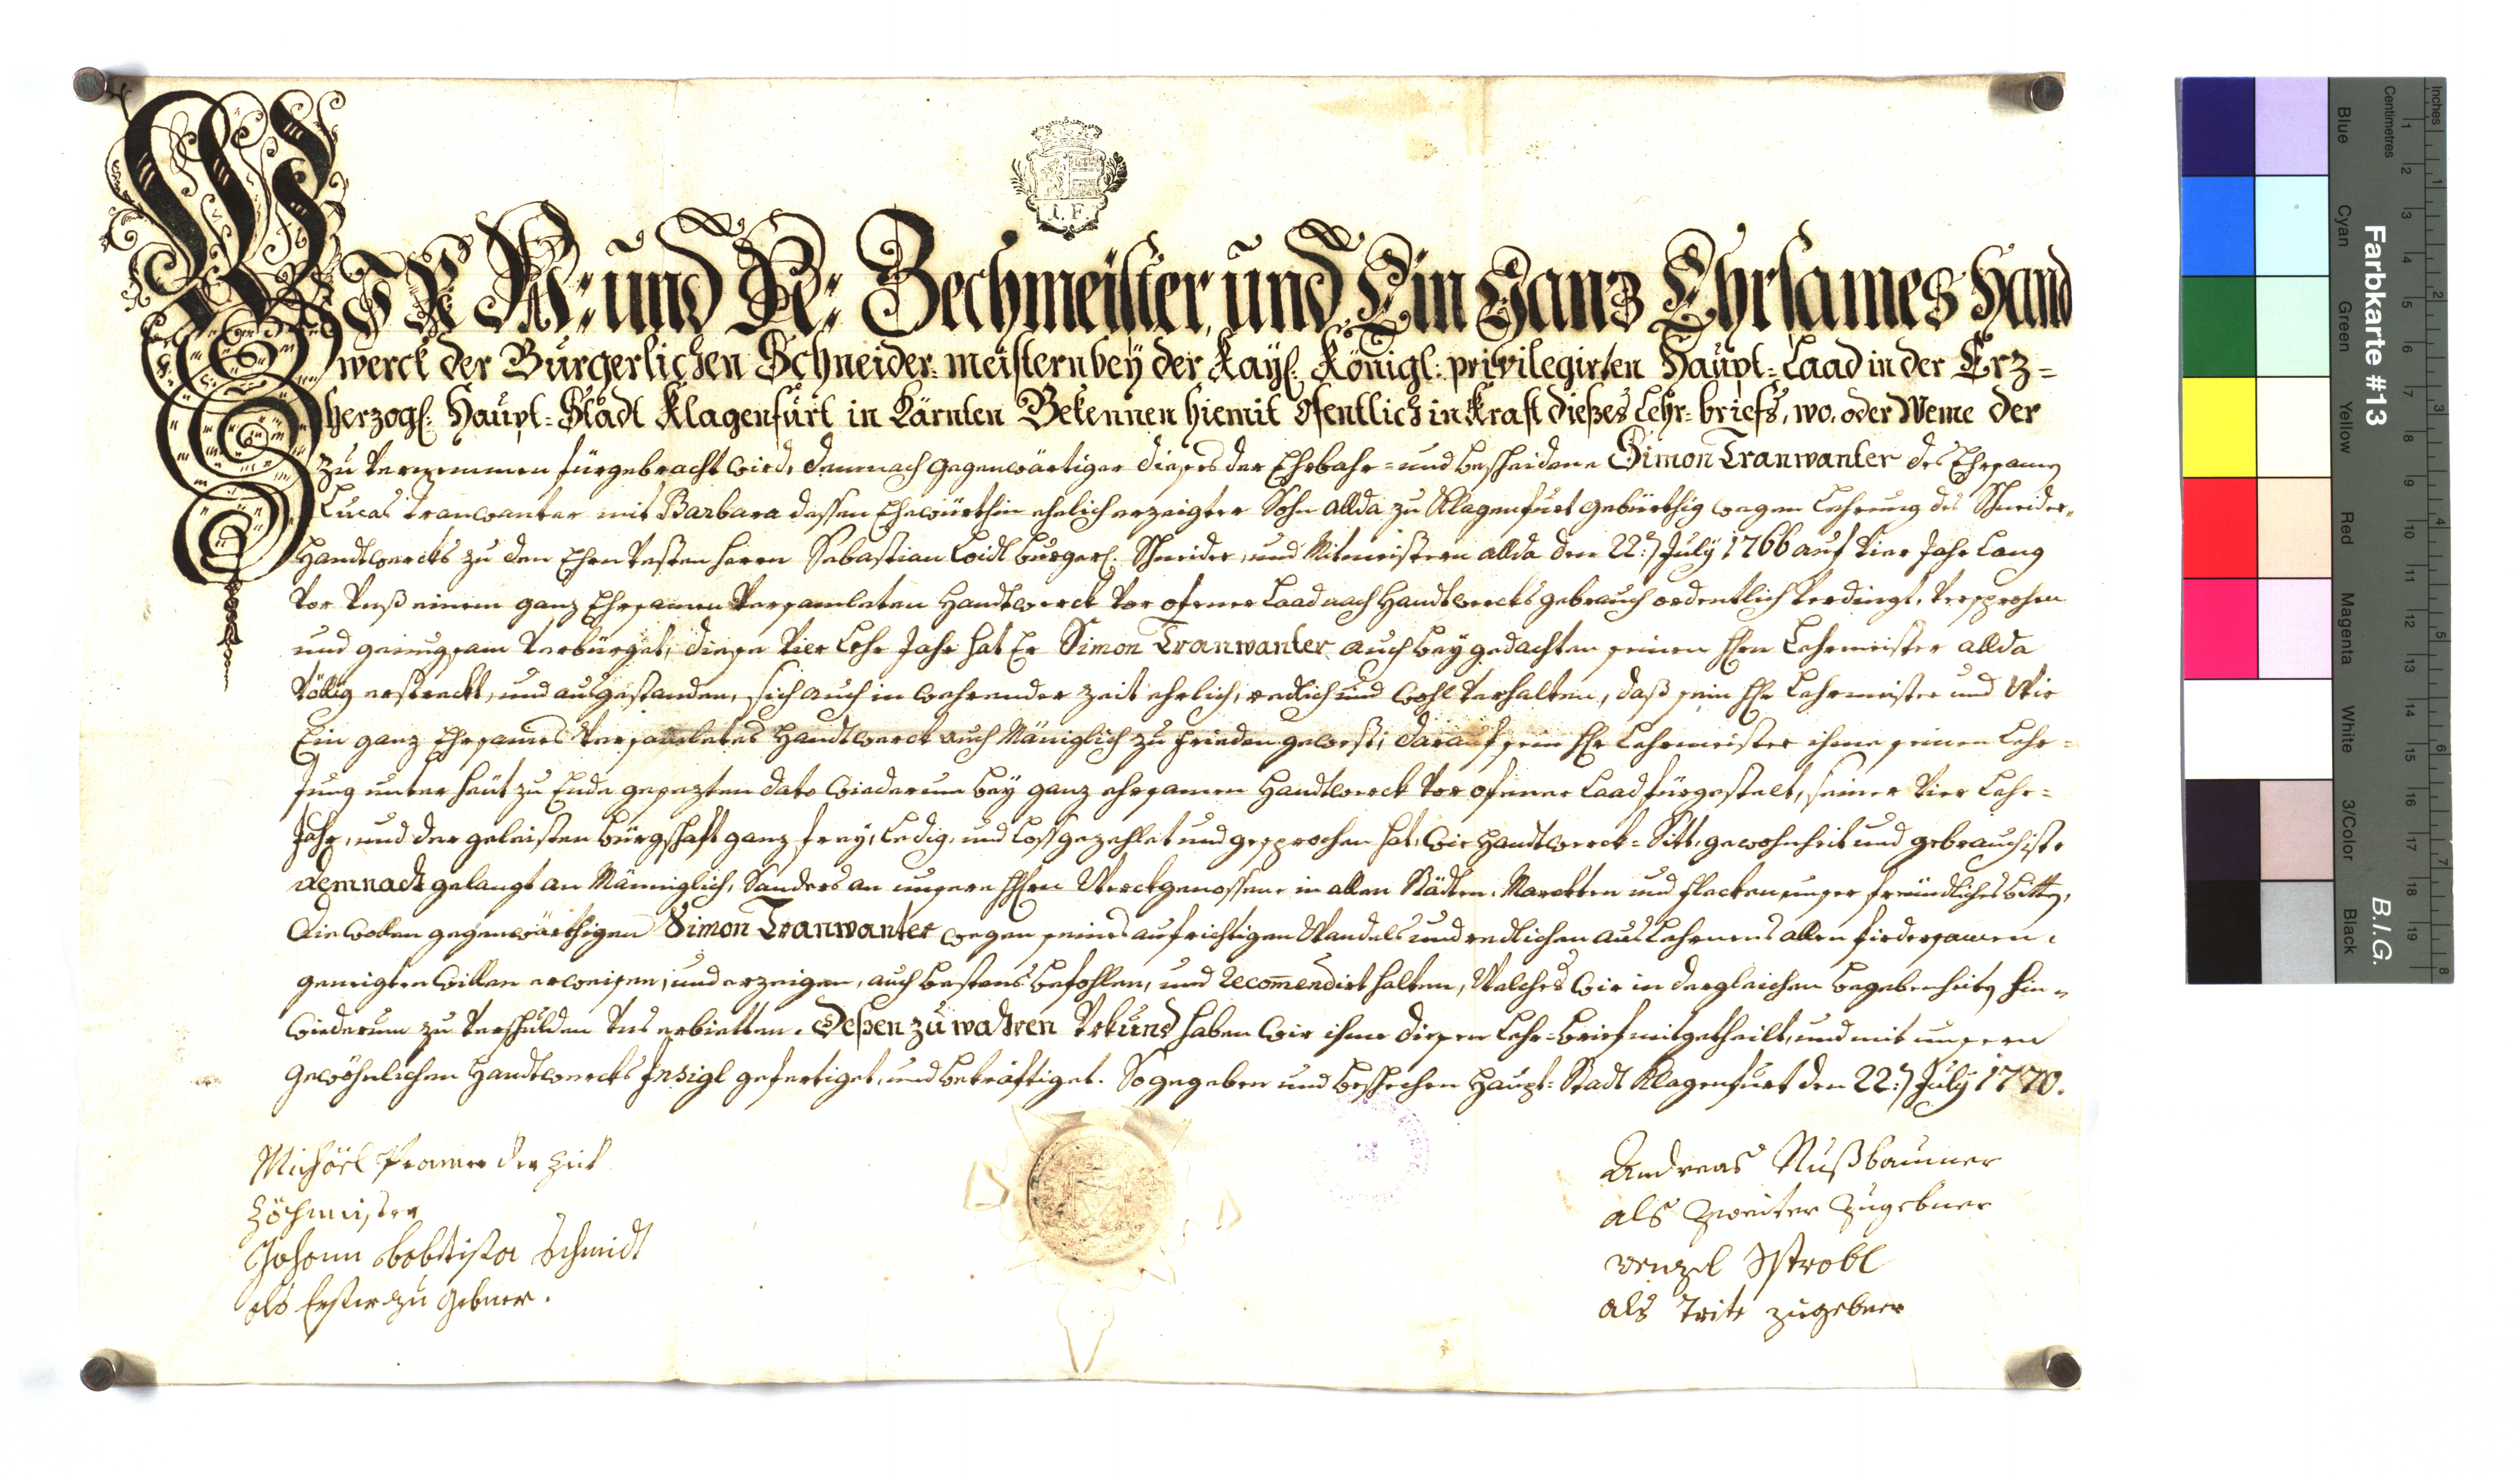 I. F.
WIR N: und N: Zechmeister, und Ein Ganz Ehrsames Hand
werck der Burgerlichen Schneider=meistern beÿ der Kayſ: Königl: privilegirten Haupt=Laad in der Erz=
herzogl: Haupt=Stadt Klagenfurt in Kärnten Bekennen hiemit öfentlich in Kraft dießes Lehr=briefs, wo, oder Weme der
zu vernemmen fürgebracht wird, demnach gegenwärtiger dieses der Ehrbahr= und bescheidene Simon Tranwanter des Ehrsamen
Lucas Tranwanter mit Barbara dessen Ehewürthin ehelich erzeigter Sohn allda zu Klagenfurt gebürthig wegen Lehrung des Schneider=
Handtwercks zu den Ehrn Vesten Herrn Sebastian Loidl burgerl: Schneider, und Mitmeistern allda den 22: July 1766 auf vier Jahr Lang
vor Unß einem ganz Ehrsamen versamleten Handtwerck vor ofener Laad nach Handtwercks gebrauch ordentlich verdingt, versprochen
und genugsam verbürget, diese vier Lehr Jahr hat Er Simon Tranwanter auch bey gedachten seinen Hrn Lehrmeister allda
völlig erstreckt, und ausgestanden, sich auch in wehrender zeit ehrlich, redlich und wohl verhalten, daß sein Hr Lehrmeister und Wir
Ein ganz Ehrsames versamletes Handtwerck auch Mäniglich zu frieden gewest; darauf sein Hr Lehrmeister ihme seinen Lehr=
Jung unter heut zu Ende gesezten dato wiederum bey ganz ehrsamen Handtwerck vor ofener Laad fürgestelt, seiner vier Lehr=
Jahr, und der geleisten bürgschaft ganz frey, Ledig, und Loß gezehlet und gesprochen hat, wie Handtwerck=Sitt, gewohnheit und gebrauch ist.
demnach gelangt an Männiglich, Sonders an unsere HHrn Werckgenossene in allen Städten, Marckten und Flecken unser freundliches bitten,
Sie wollen gegenwärthigen Simon Tranwanter wegen seines aufrichtigen Wandels und redlichen aus Lehrnens allen fürdersamen,
geneigten willen erweisen, und erzeigen, auch bestens befohlen, und Recom̄endirt halten, Welches wir in dergleichen begebenheiten hin=
wiederum zu verschulden Uns erbietten. Deßen zu wahren Urkund haben wir ihme diesen Lehr=brief mitgetheilt, und mit unsern
gewöhnlichen Handtwercks Insigl gefertiget, und bekräftiget. So gegeben und beschechen Haupt=Stadt Klagenfurt den 22: July 1770.
Michäel der zeit
Zöchmeister
Johann Babtista Schmidt
als Erster zu gebner.
Andreas Nußbaumer
als zweiter zugebner
Wenzel Strobl
als Trite zugebner
Farbkarte #13
B.I.G.
Inches
Centimetres
Blue
Cyan
Green
Yellow
Red
Magenta
White
3/Color
Black
1 2 3 4 5 6 7 8 9 10 11 12 13 14 15 16 17 18 19
1 2 3 4 5 6 7 8